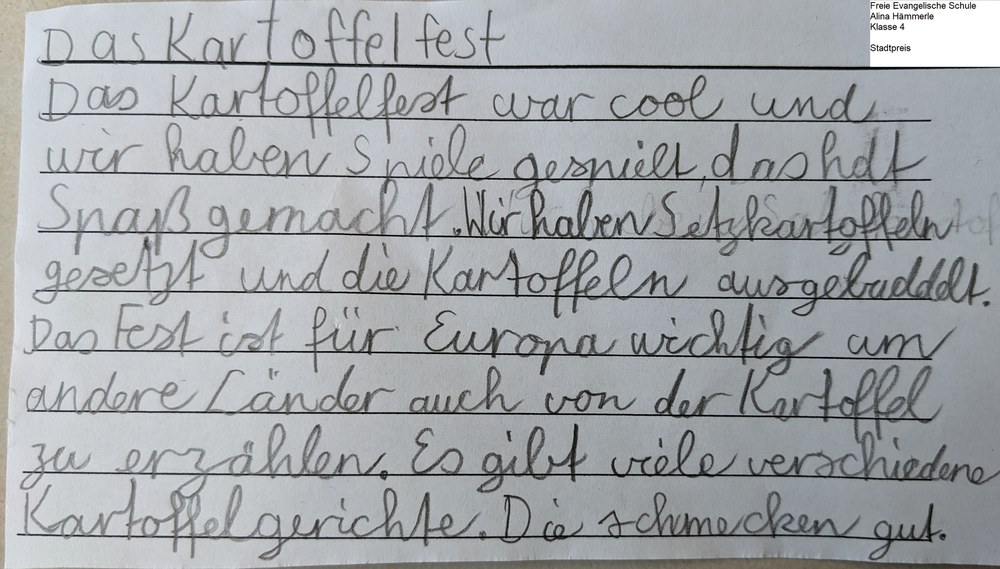 Freie Evangelische Schule
Alina Hämmerle
Klasse 4
Stadtpreis
Das Kartoffelfest
Das Kartoffelfest war cool und
wir haben Spiele gespielt, das hat
Spaß gemacht. Wir haben Setzkartoffeln
gesetzt und die Kartoffeln ausgebuddelt.
Das Fest ist für Europa wichtig um
andere Länder auch von der Kartoffel
zu erzählen. Es gibt viele verschiedene
Kartoffelgerichte. Die schmecken gut.